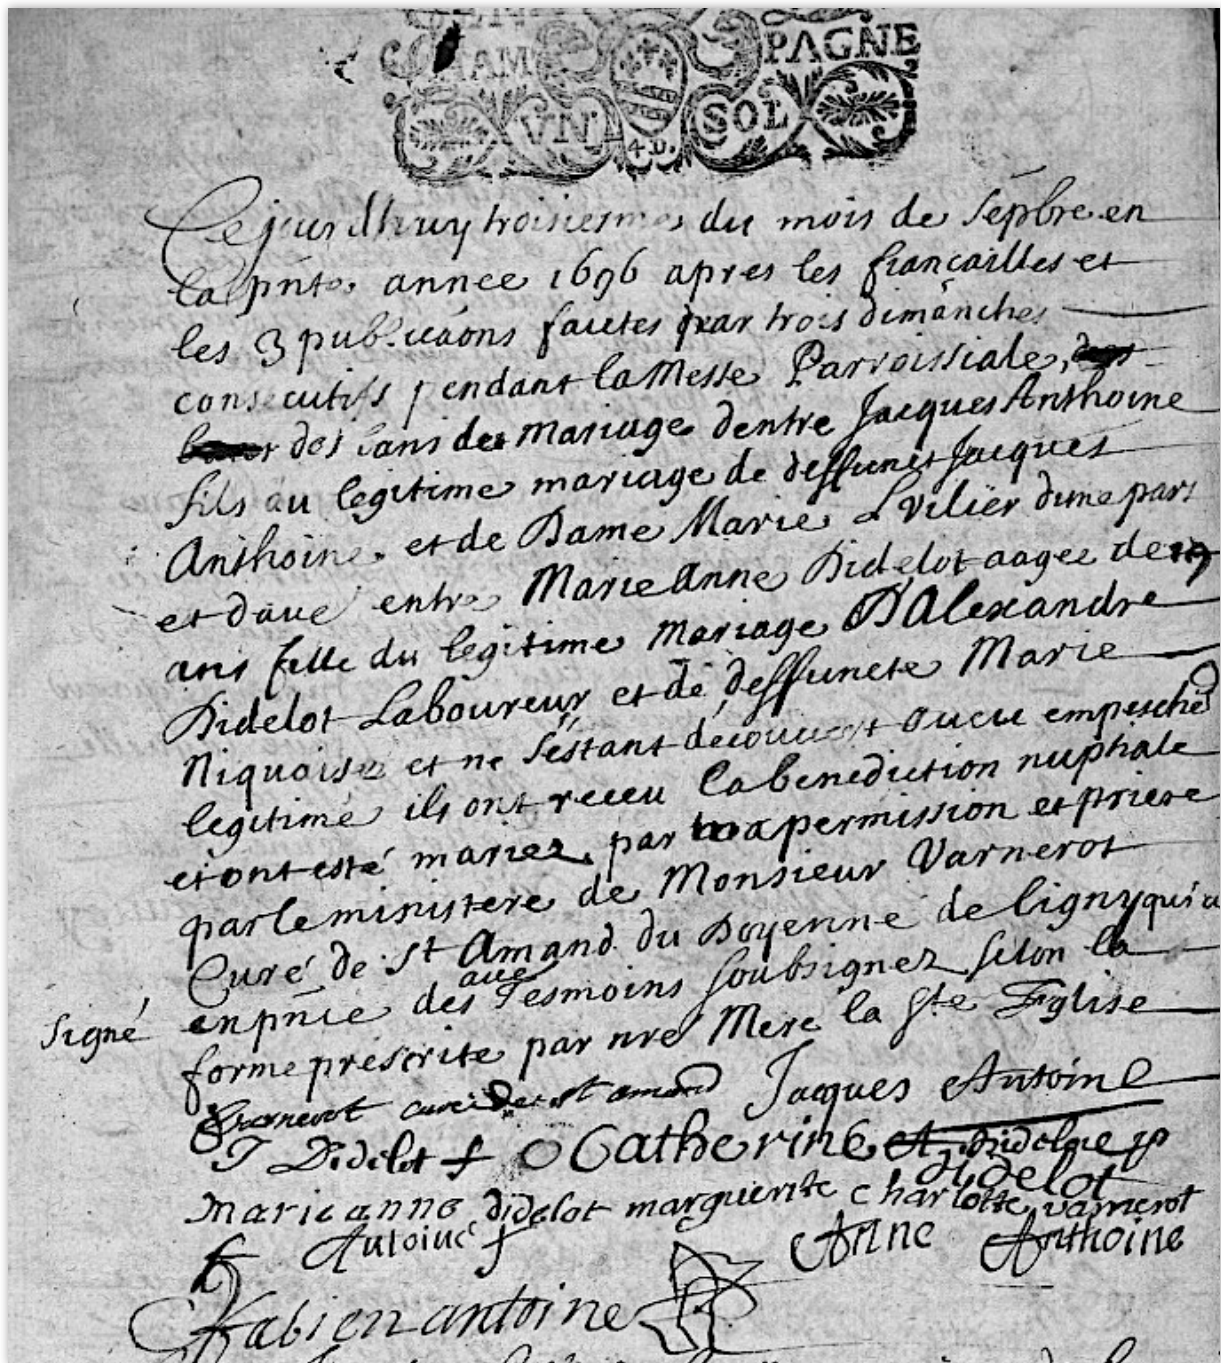 CHAM PAGNE
VN SOL
4 D.
Ce jourdhuy troisiesme du mois de sepbre en
la pnte annee 1696 apres les fiançailles et
les 3 publicaons faictes par trois dimanches
consecutifs pendant la Messe Parroissiale,
des bans de Mariage dentre Jacques Anthoine
fils au legitime mariage de deffunct Jacques
Anthoine et de Dame Marie Lvilier dune part
et dave entre Marie Anne Didelot aagee de 19
ans fille du legitime Mariage D'Alexandre
Didelot Laboureur et de deffuncte Marie
Niquoise et ne s'estant decouvert aucu empeschē
legitime ils ont receu la benediction nuptiale
et ont esté mariez par permission et priere
par le ministere de Monsieur Varnerot
Curé de St Amand du Doyenné de Ligny qui a
signé en pnce des tesmoins soubsignez selon la
forme prescrite par nre Mere la Ste Eglise
Varnerot curé de st amand Jacques Antoine
J Didelot Catherine
didelot
marie anne didelot marguerite charlotte varnerot
Antoine Anne Anthoine
Fabien antoine